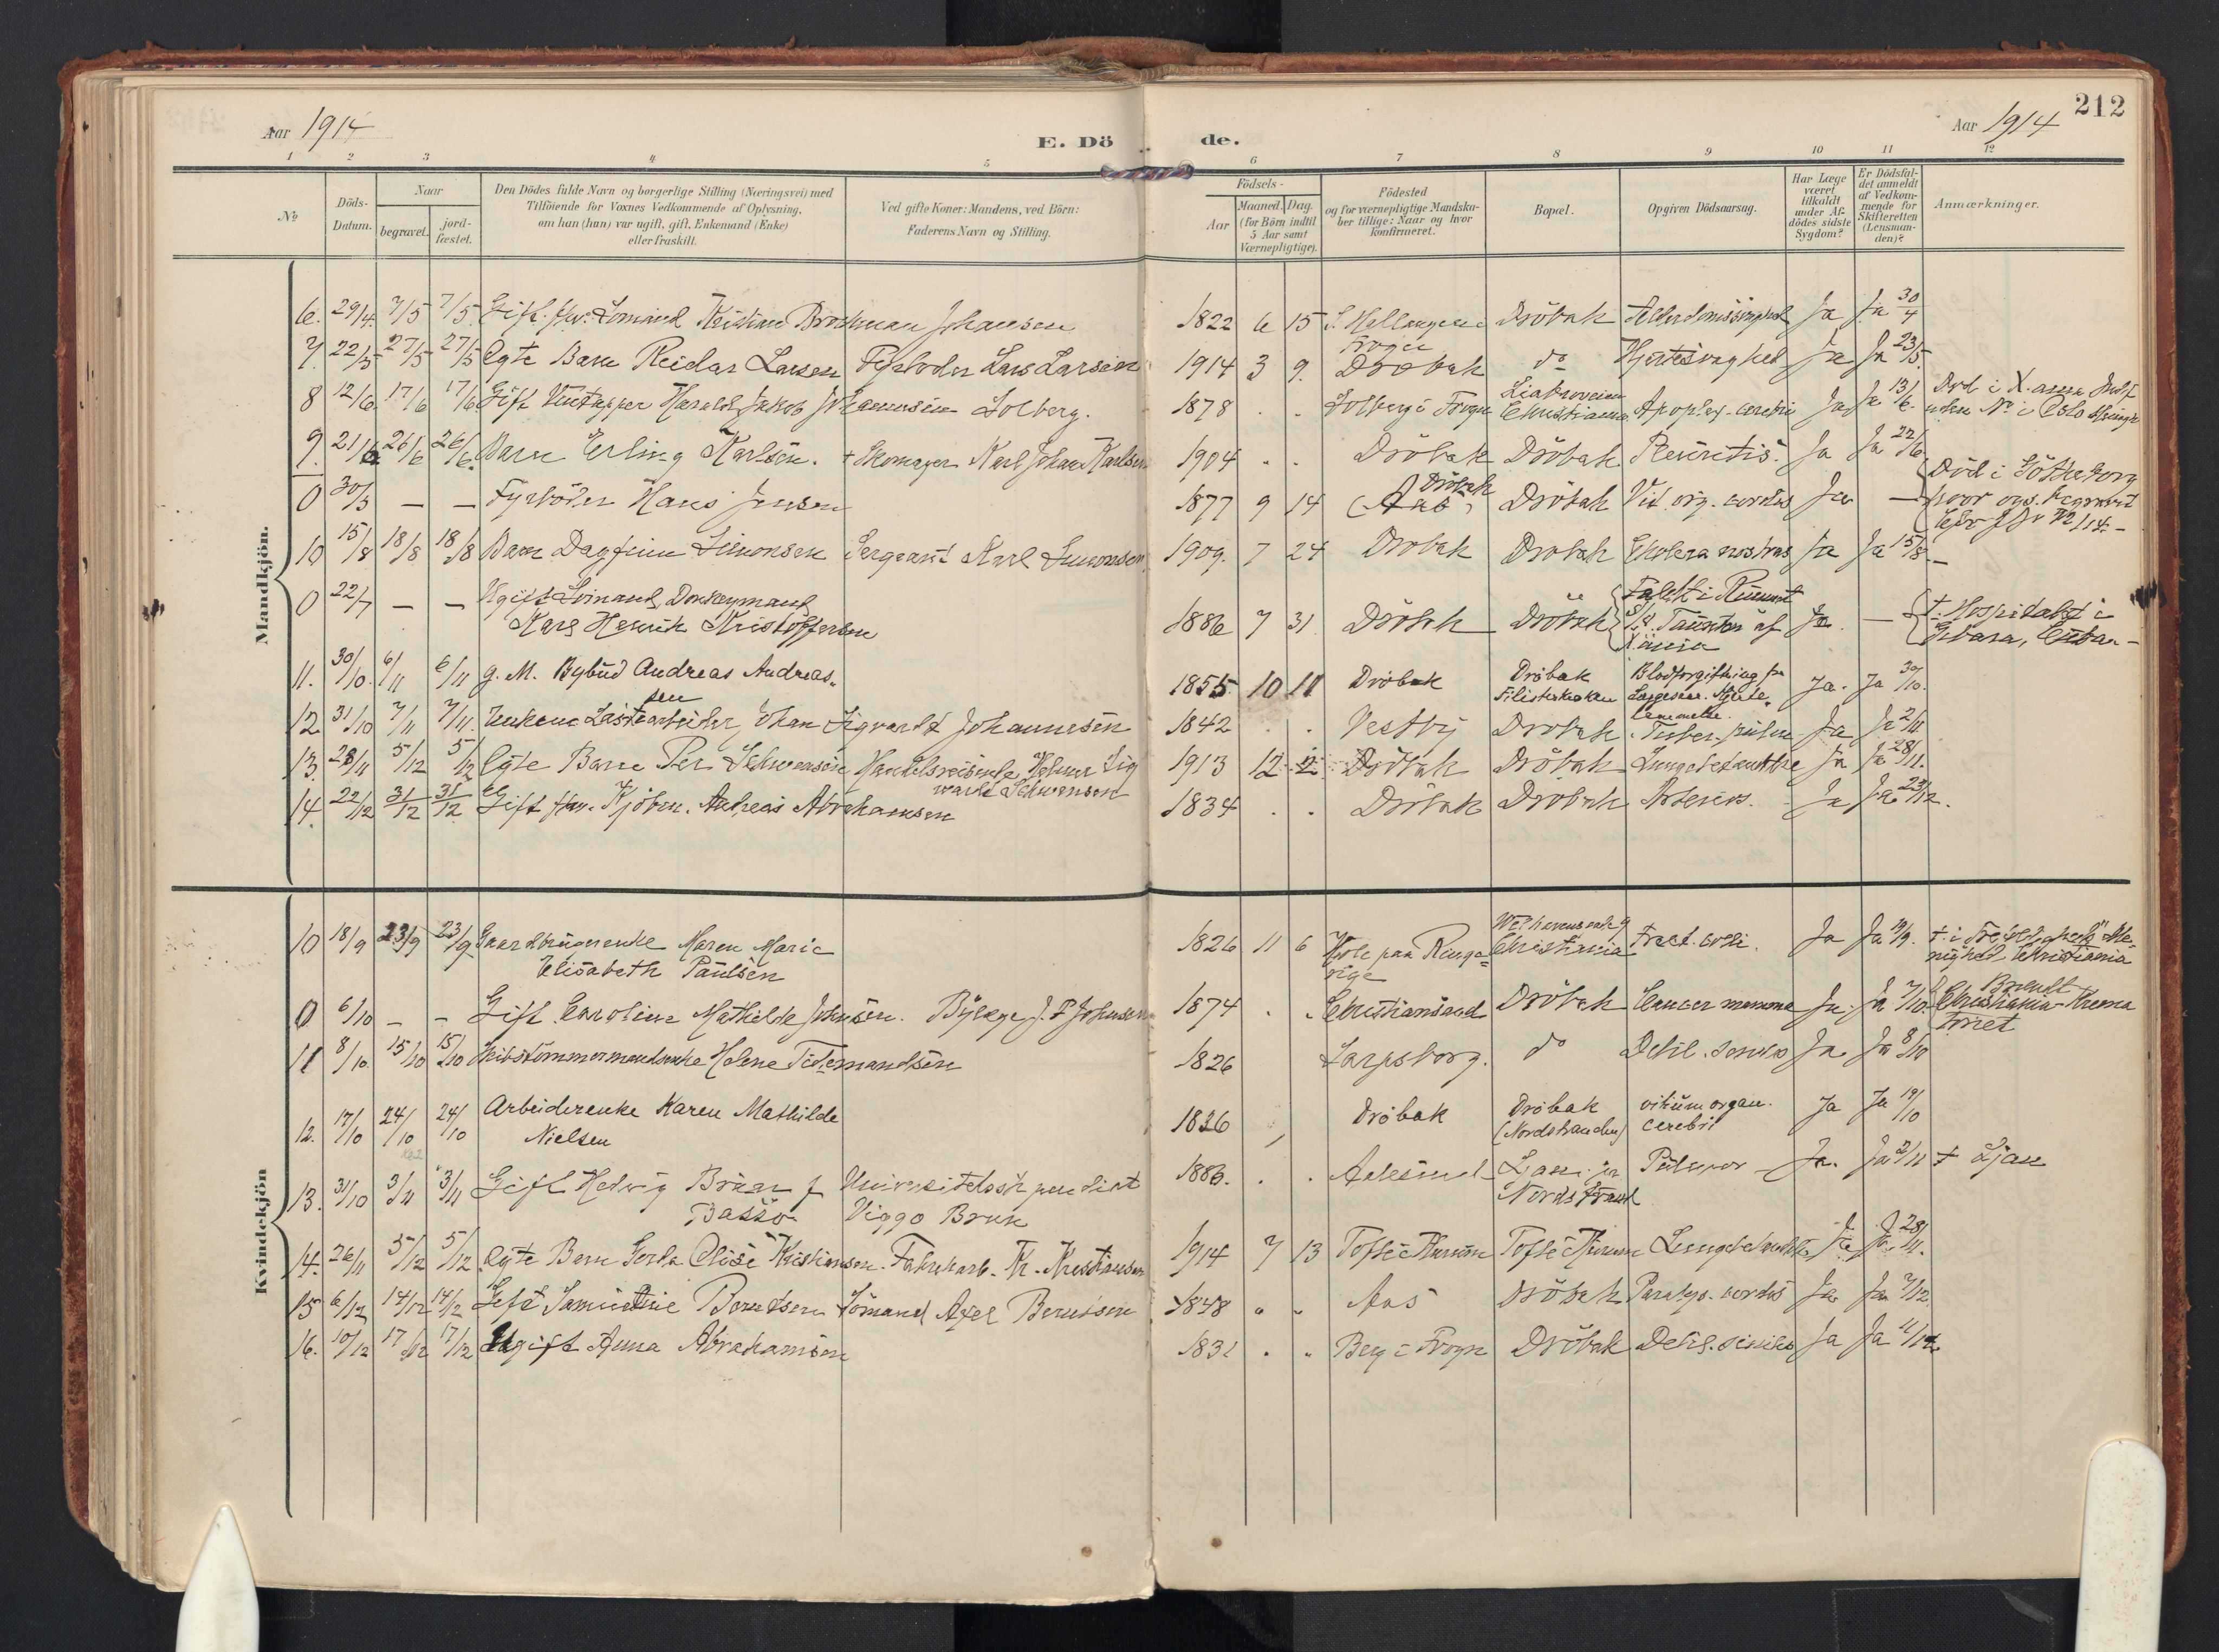 212
Aar 1914
E. Döde.
Aar 1914
1 2 3 4 5 6 7 8 9 10 11 12
No
Döds-Datum.
Naar
begravet.
jord-fæstet.
Den Dödes fulde Navn og borgerlige Stilling (Næringsvei) med
Tilföiende for Voxnes Vedkommende af Oplysning,
om han (hun) var ugift, gift, Enkemand (Enke)
eller fraskilt.
Ved gifte Koner: Mandens, ved Börn:
Faderens Navn og Stilling.
Födsels-
Aar
Maaned. Dag.
(for Börn indtil
5 Aar samt
Værnepligtige).
Födested
og for værnepligtige Mandska-
ber tillige: Naar og hvor
konfirmeret.
Bopæl.
Opgiven Dödsaarsag.
Har Læge
været
tilkaldt
under Af-
dödes sidste
Sygdom?
Er Dödsfal-
det anmeldt
af Vedkom-
mende for
Skifteretten
(Lensman-
den)?
Anmærkninger.
Mandkjön.
6. 29/4 7/5 7/5 Gift fhv. Sömand Kristian Brockman Johansen 1822 6 15 Dröbak Ja Ja 30/4
Frogn
7. 22/5 27/5 27/5 Ægte Barn Reidar Larsen Fyrböder Lars Larsen 1914 3 9. Dröbak do Hjertesvaghed Ja Ja 23/5.
8 12/6 17/6 17/6 Gift Vintapper Harald Jakob Johannesen Solberg. 1878 . . Solberg i Frogn Christiania Apoplex. cerebri Ja Ja 13/6.
9. 21/6 26/6 26/6. Barn Erling Karlsen. + Skomager Karl Johan Karlsen 1904 . . Dröbak Dröbak. Ja Ja 22/6
0 30/3 — — Fyrböder Hans Jensen 1877 9 14 (Aas) Dröbak Dröbak Vit. org. cordis Ja — Död i Götheborg
10 15/8 18/8 18/8 Barn Dagfinn Simonsen Sergeant Karl Simonsen 1909. 7 24 Dröbak Dröbak Cholera nostras Ja Ja 15/8 –
0 22/7 — — Ugift Sömand, Donkeymand
Karl Henrik Kristoffersen 1886 7 31 Dröbak Dröbak Ja. — + Hospitalet i
Gibara, Cuba –
11. 30/10. 6/11 6/11 g. M. Bybud Andreas Andreas-
sen 1855 10 11 Dröbak Dröbak Blodforgiftning Ja. Ja 30/10.
12 31/10 7/11 7/11. Enkem. Lastearbeider Johan Sigvardt Johannesen 1842 . . Vestby Dröbak Tuber. pulm. Ja Ja 2/11
13. 28/11 5/12 5/12 Ægte Barn Per Schwensen Handelsreisende Holm Sig
wardt Schwensen 1913 12 2 Dröbak Dröbak Lungebetændelse Ja Ja 28/11.
14. 22/12 31/12 31/12 Gift fhv. Kjöbm. Andreas Abrahamsen 1834 . . Dröbak Dröbak Ja Ja 23/12.
Kvindekjön
10 18/9 23/9 23/9 Gaardbrugerenke Maren Marie
Elisabeth Paulsen 1826 11 6 Hole paa Ringe-
rige Christiania Fract. colli. Ja Ja 19/9.
0 6/10 – – Gift Caroline Mathilde Johnsen. J. P. Johnsen 1874 . . Christianssand Dröbak Cancer mamma Ja. Ja 7/10. Brændt
Christiania Krema
toriet
11 8/10 15/10 15/10 Skibstömmermandsenke Helene Tidemandsen 1826 Sarpsborg. do Debil. senilis Ja Ja 8/10
12. 17/10 24/10 24/10 Arbeiderenke Karen Mathilde
Nielsen 1836 Dröbak Dröbak
(Nordstranden) vitium organ.
cerebri Ja Ja 19/10
13. 31/10 3/11 3/11 Gift Hedvig Bruun f
Basso Universitetsstipendiat
Viggo Bruun 1886. . . Aalesund Ljan pr
Nordstrand Ja. Ja 2/11 + Ljan
14. 26/11 5/12 5/12 Ægte Barn Gerda Elise Kristiansen. Fabrikarb. K. Kristiansen 1914 7 13 Tofte i Hurum Tofte i Hurum Lungebetændelse Ja Ja 28/11.
15 6/12 14/12 14/12 Gift Samueline Berntsen Sömand Axel Berntsen 1848 . . Aas Dröbak Paralys. cordis Ja Ja 7/12
16. 10/12 17/12 17/12 Ugift Anna Abrahamsen 1831 . . Berg i Frogn Dröbak Debil. senilis Ja Ja 11/12